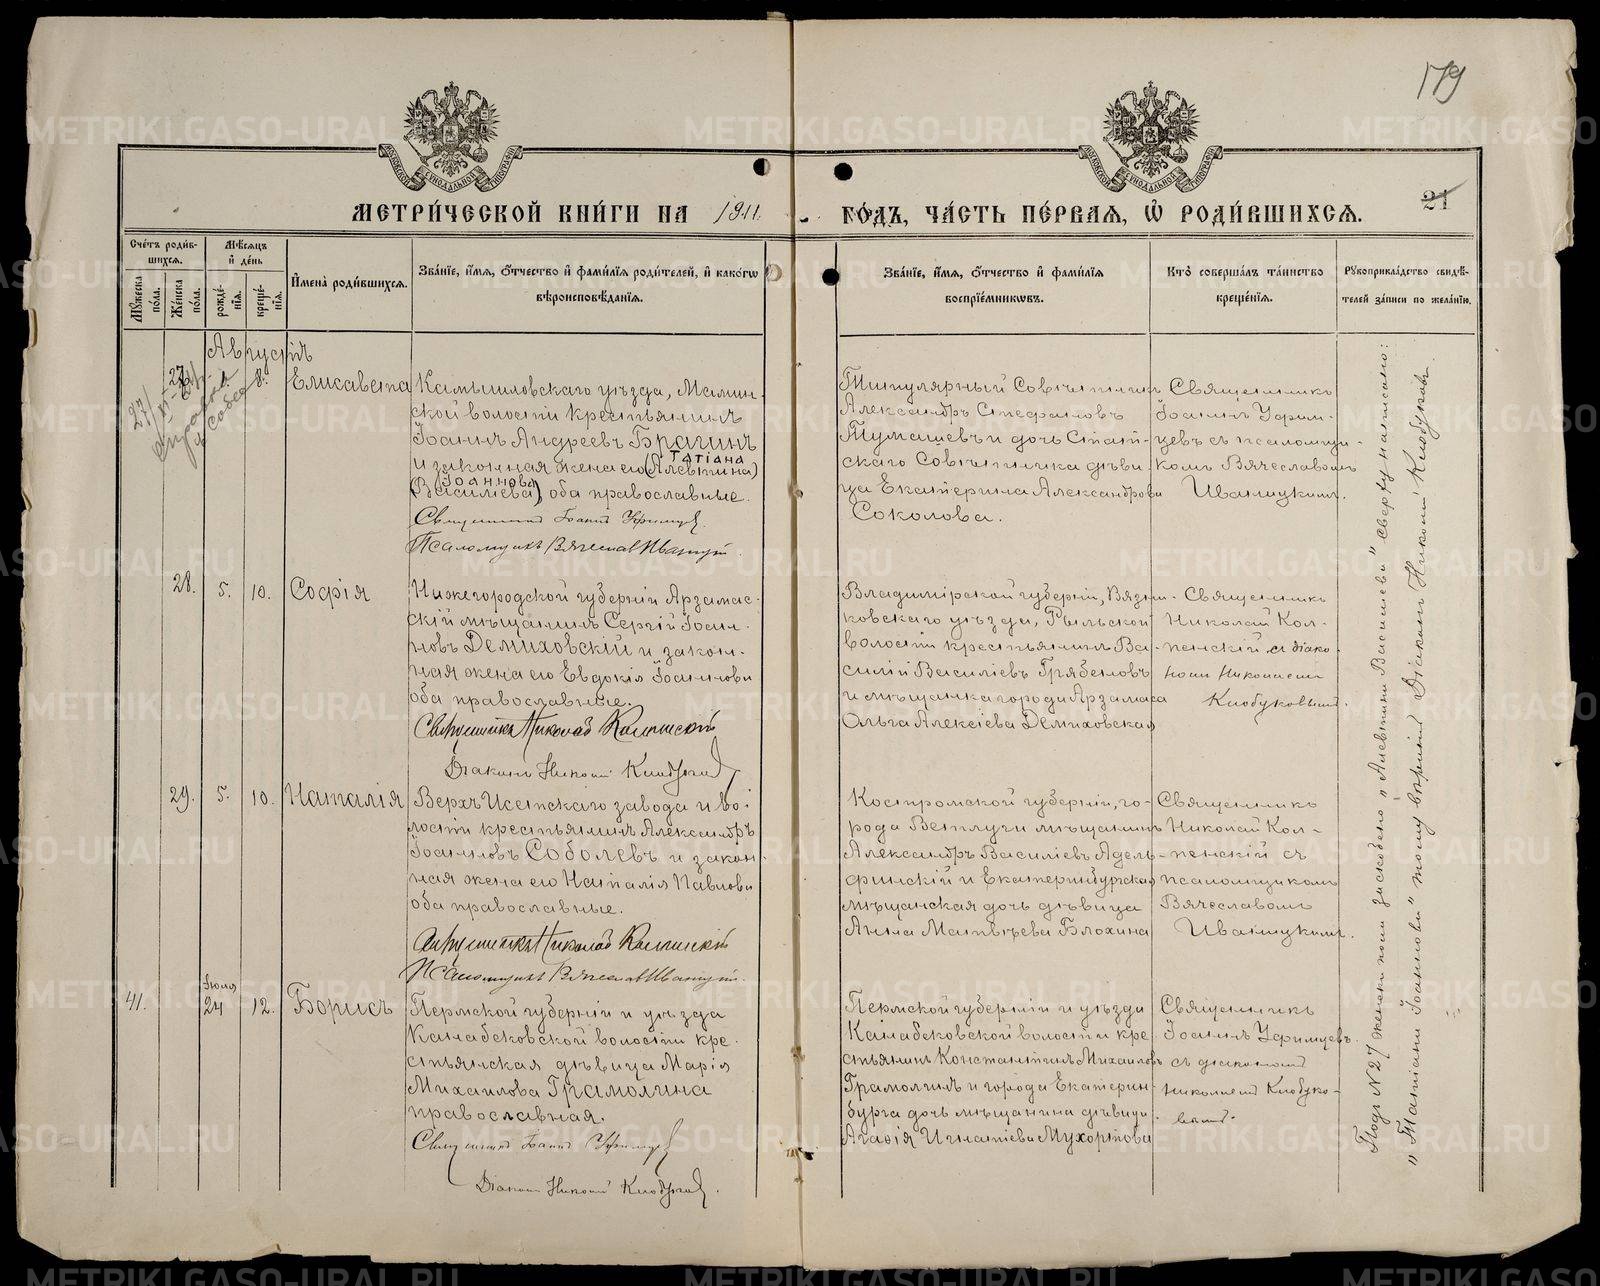 179
МЕТРИ́ЧЕСКОЙ КНИ́ГИ НА 1911 ГО́ДЪ, ЧА́СТЬ ПЕ́РВАЯ, Ѡ҆ РОДИ́ВШИХСЯ.
21
Счётъ роди́вшихся.
Мѹжеска по́ла.
Же́нска по́ла.
Мѣсяцъ и҆ де́нь
рожде́нїя.
креще́нїя.
И҆мена̀ роди́вшихся.
Зва́нїе, и҆́мя, о҆́тчество и҆ фами́лїя роди́телей, и҆ како́гѡ
вѣроисповѣ́данїя.
Зва́нїе, и҆́мя, о҆́тчество и҆ фами́лїя
воспрїе́мникѡвъ.
Кто̀ соверша́лъ та́инство
креще́нїя.
Рѹкоприкла́дство свидѣ́-
телей за́писи по жела́нїю.
Августъ
27
8.
Елисавета
Камышловскаго уѣзда, Мамин-
ской волости крестьянинъ
Іоаннъ Андреевъ Брагинъ
Татіана
и законная жена его (Алевтина)
Іоаннова
(Василіева) оба православные.
Священникъ Іоаннъ Уфимцевъ.
Псаломщикъ Вячеславъ Иваницкій.
Титулярный Совѣтникъ
Александръ Стефановъ
Тумашевъ и дочь Стат-
скаго Совѣтника дѣви-
ца Екатерина Александрова
Соколова.
Священникъ
Іоаннъ Уфим-
цевъ съ псаломщи-
комъ Вячеславомъ
Иваницкимъ.
28.
5.
10.
Софія
Нижегородской губерніи Арзамас-
скій мѣщанинъ Сергій Іоан-
новъ Демиховскій и закон-
ная жена его Евдокія Іоаннова
оба православные.
Священникъ Николай Колпенскій
Діаконъ Николай Клобуковъ
Владимірской губерніи, Вязни-
ковскаго уѣзда, Рыльской
волости крестьянинъ Ва-
силій Василіевъ Грябеновъ
и мѣщанка города Арзамаса
Ольга Алексіева Демиховская
Священникъ
Николай Кол-
пенскій съ діако-
номъ Николаемъ
Клобуковымъ.
29.
5.
10.
Наталія
Верхъ Исетскаго завода и во-
лости крестьянинъ Александръ
Іоанновъ Соболевъ и закон-
ная жена его Наталія Павлова
оба православные.
Священникъ Николай Колпенскій
Псаломщикъ Вячеславъ Иваницкій.
Костромской губерніи, го-
рода Ветлуги мѣщанинъ
Александръ Василіевъ Адель-
финскій и Екатеринбургская
мѣщанская дочь дѣвица
Анна Матвѣева Блохина
Священникъ
Николай Кол-
пенскій съ
псаломщикомъ
Вячеславомъ
Иваницкимъ.
41.
Іюля
24
12.
Борисъ
Пермской губерніи и уѣзда
Канабековской волости кре-
стьянская дѣвица Марія
Михаилова Грамолина
православная.
Священникъ Іоаннъ Уфимцевъ
Діаконъ Николай Клобуковъ.
Пермской губерніи и уѣзда
Канабековской волости кре-
стьянинъ Константинъ Михаиловъ
Грамолинъ и города Екатерин-
бурга дочь мѣщанина дѣвица
Агафія Игнатіева Мухортова
Священникъ
Іоаннъ Уфимцевъ
съ діакономъ
Николаемъ Клобуко-
вымъ.
Подъ № 27 женск. пола зискоблено „Алевтина Василіева" сверху написано:
„Татіана Іоаннова" тому вѣритъ Діаконъ Николай Клобуковъ.